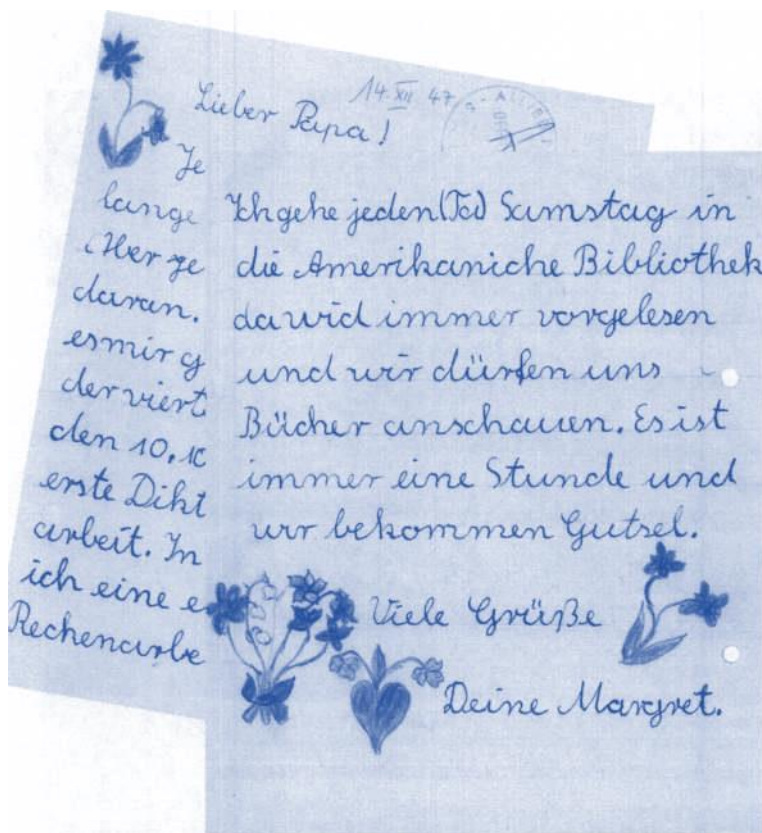 14. XII 47
Lieber Papa!
Je
lange
Aber ge
daran.
es mir g
der viert
den 10. 10
erste Dikt
arbeit. In
ich eine e
Rechenarbe
Ich gehe jeden (Tad) Samstag in
die Amerikaniche Bibliothek
da wid immer vorgelesen
und wir dürfen uns
Bücher anschauen. Es ist
immer eine Stunde und
wir bekommen Gutsel.
Viele Grüße
Deine Margret.